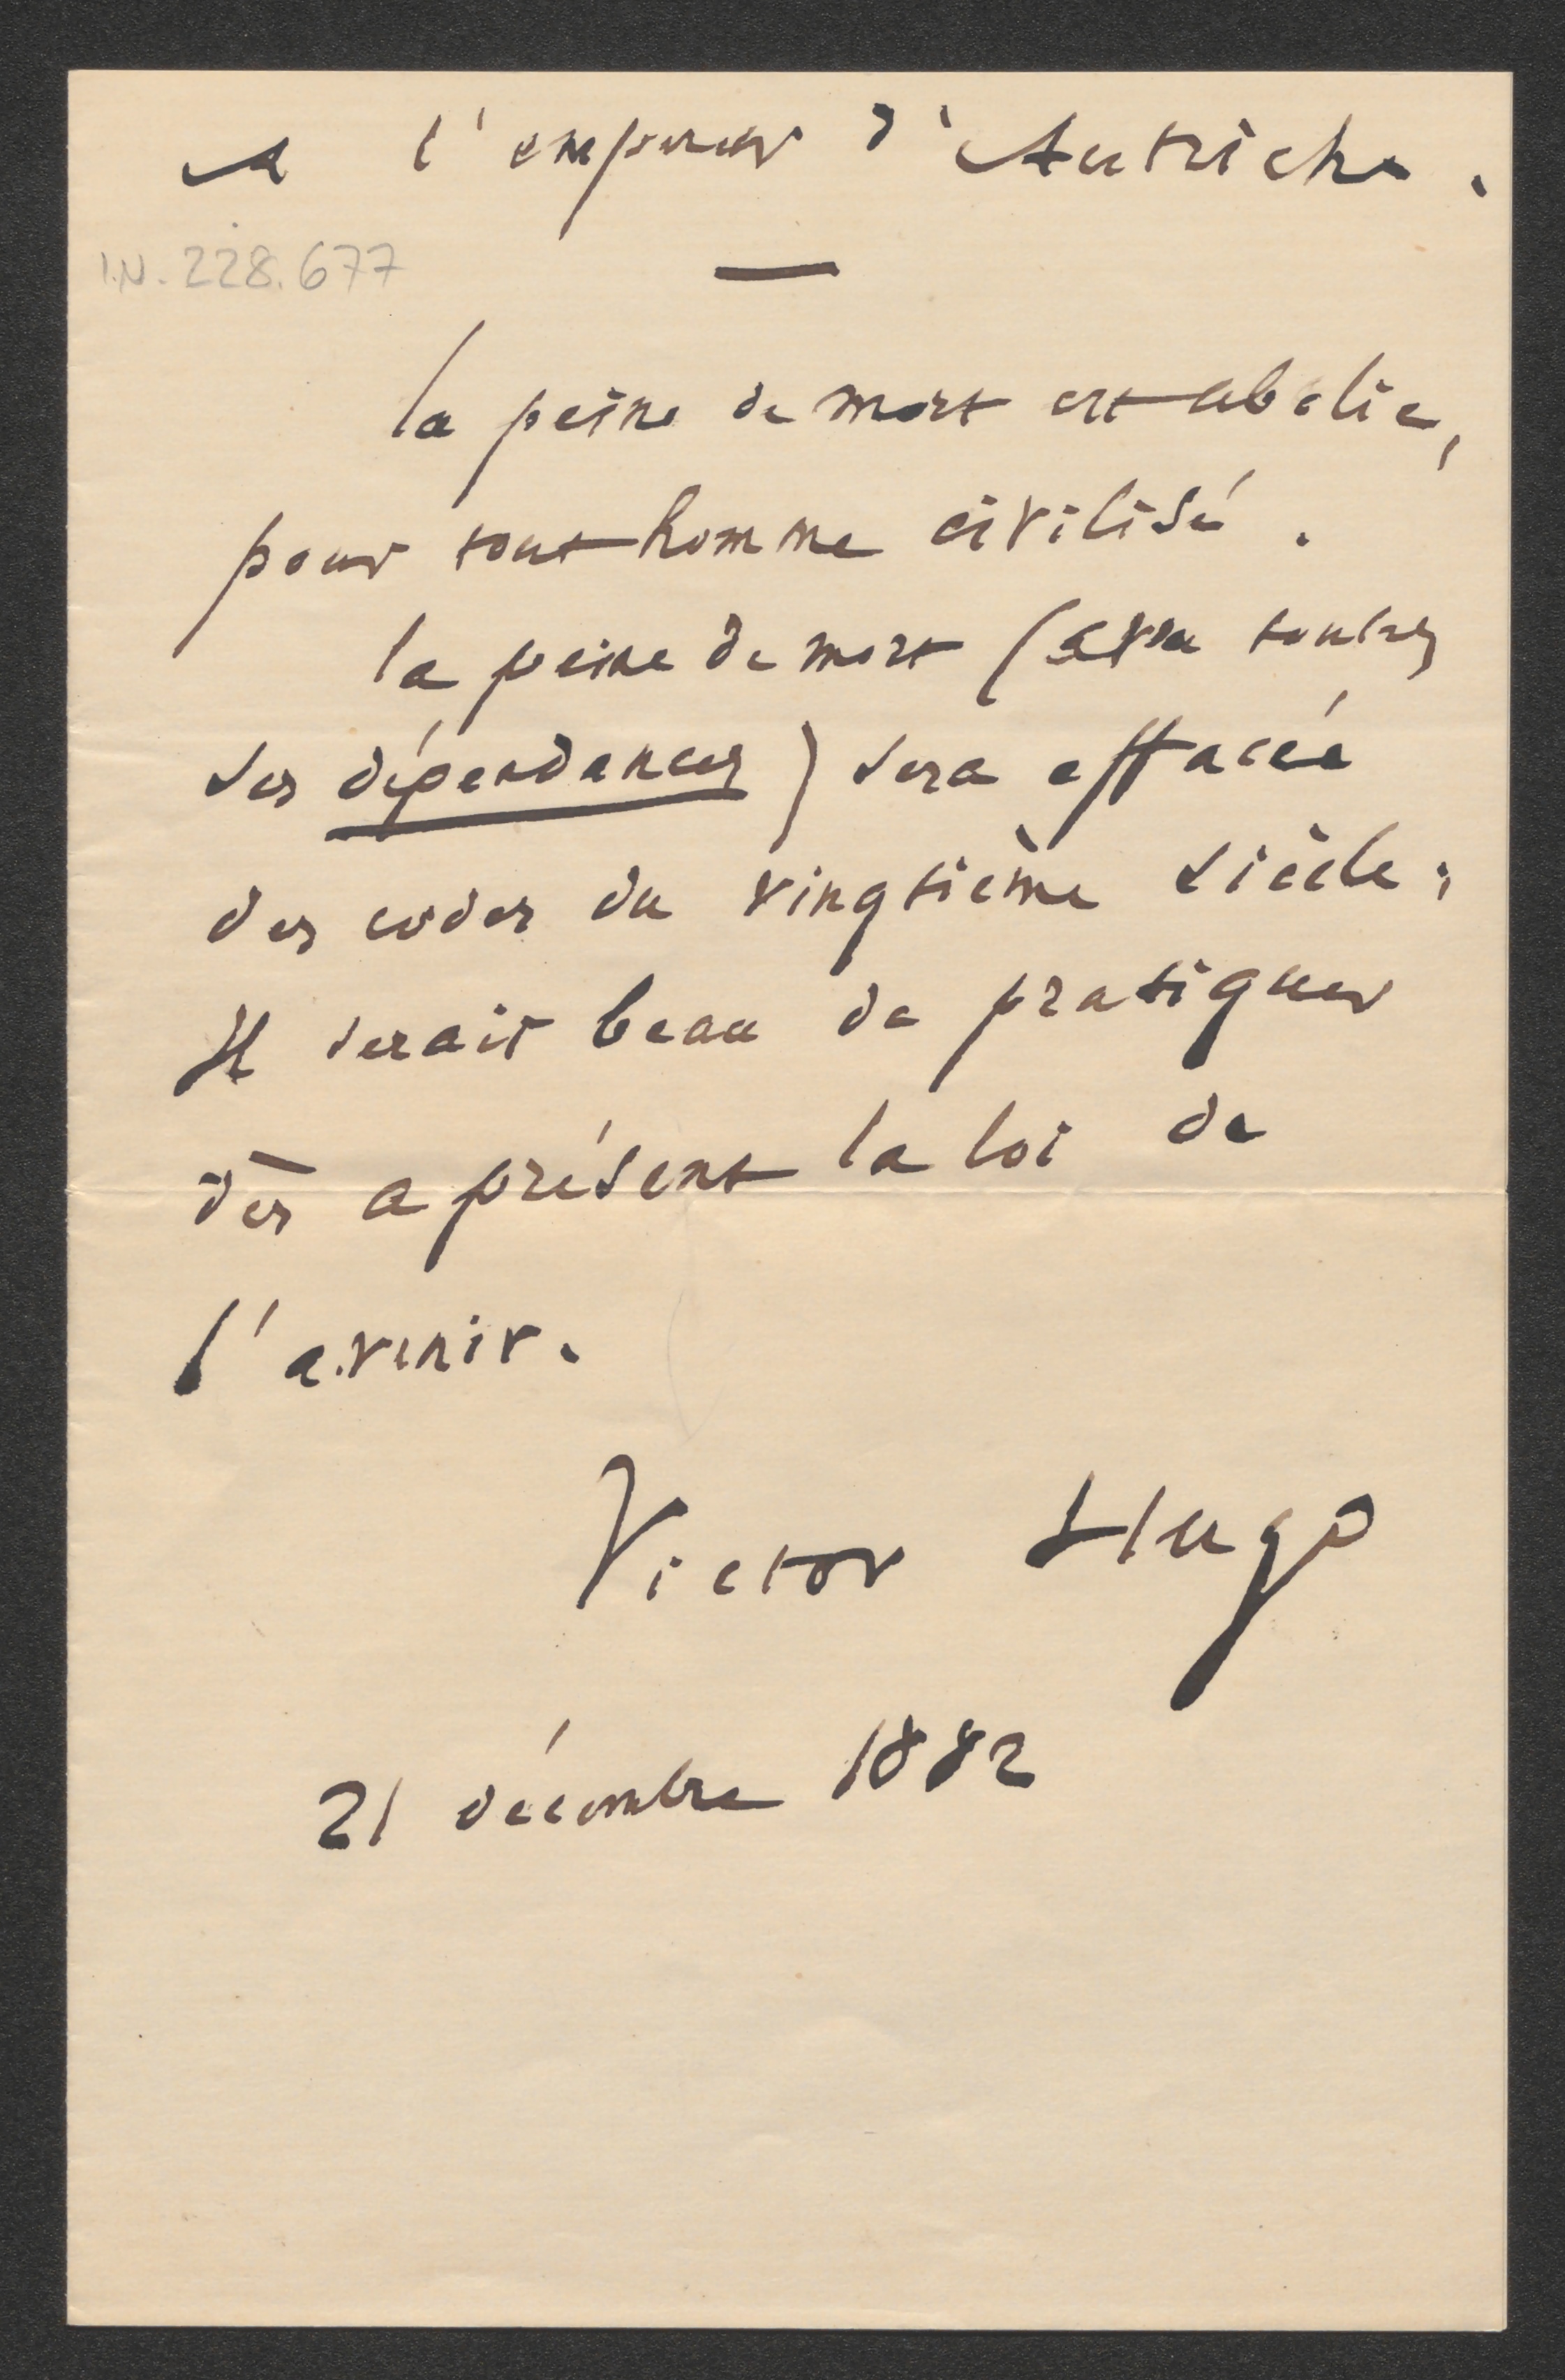 A l'empereur d'Autriche.
I.N. 228.677
—
la peine de mort est abolie,
pour tout homme civilisé.
la peine de mort (avec toutes
ses dépendances) sera effacée
des codes du vingtième siècle.
Il serait beau de pratiquer
dès a présent la loi de
l'avenir.
Victor Hugo
21 décembre 1882